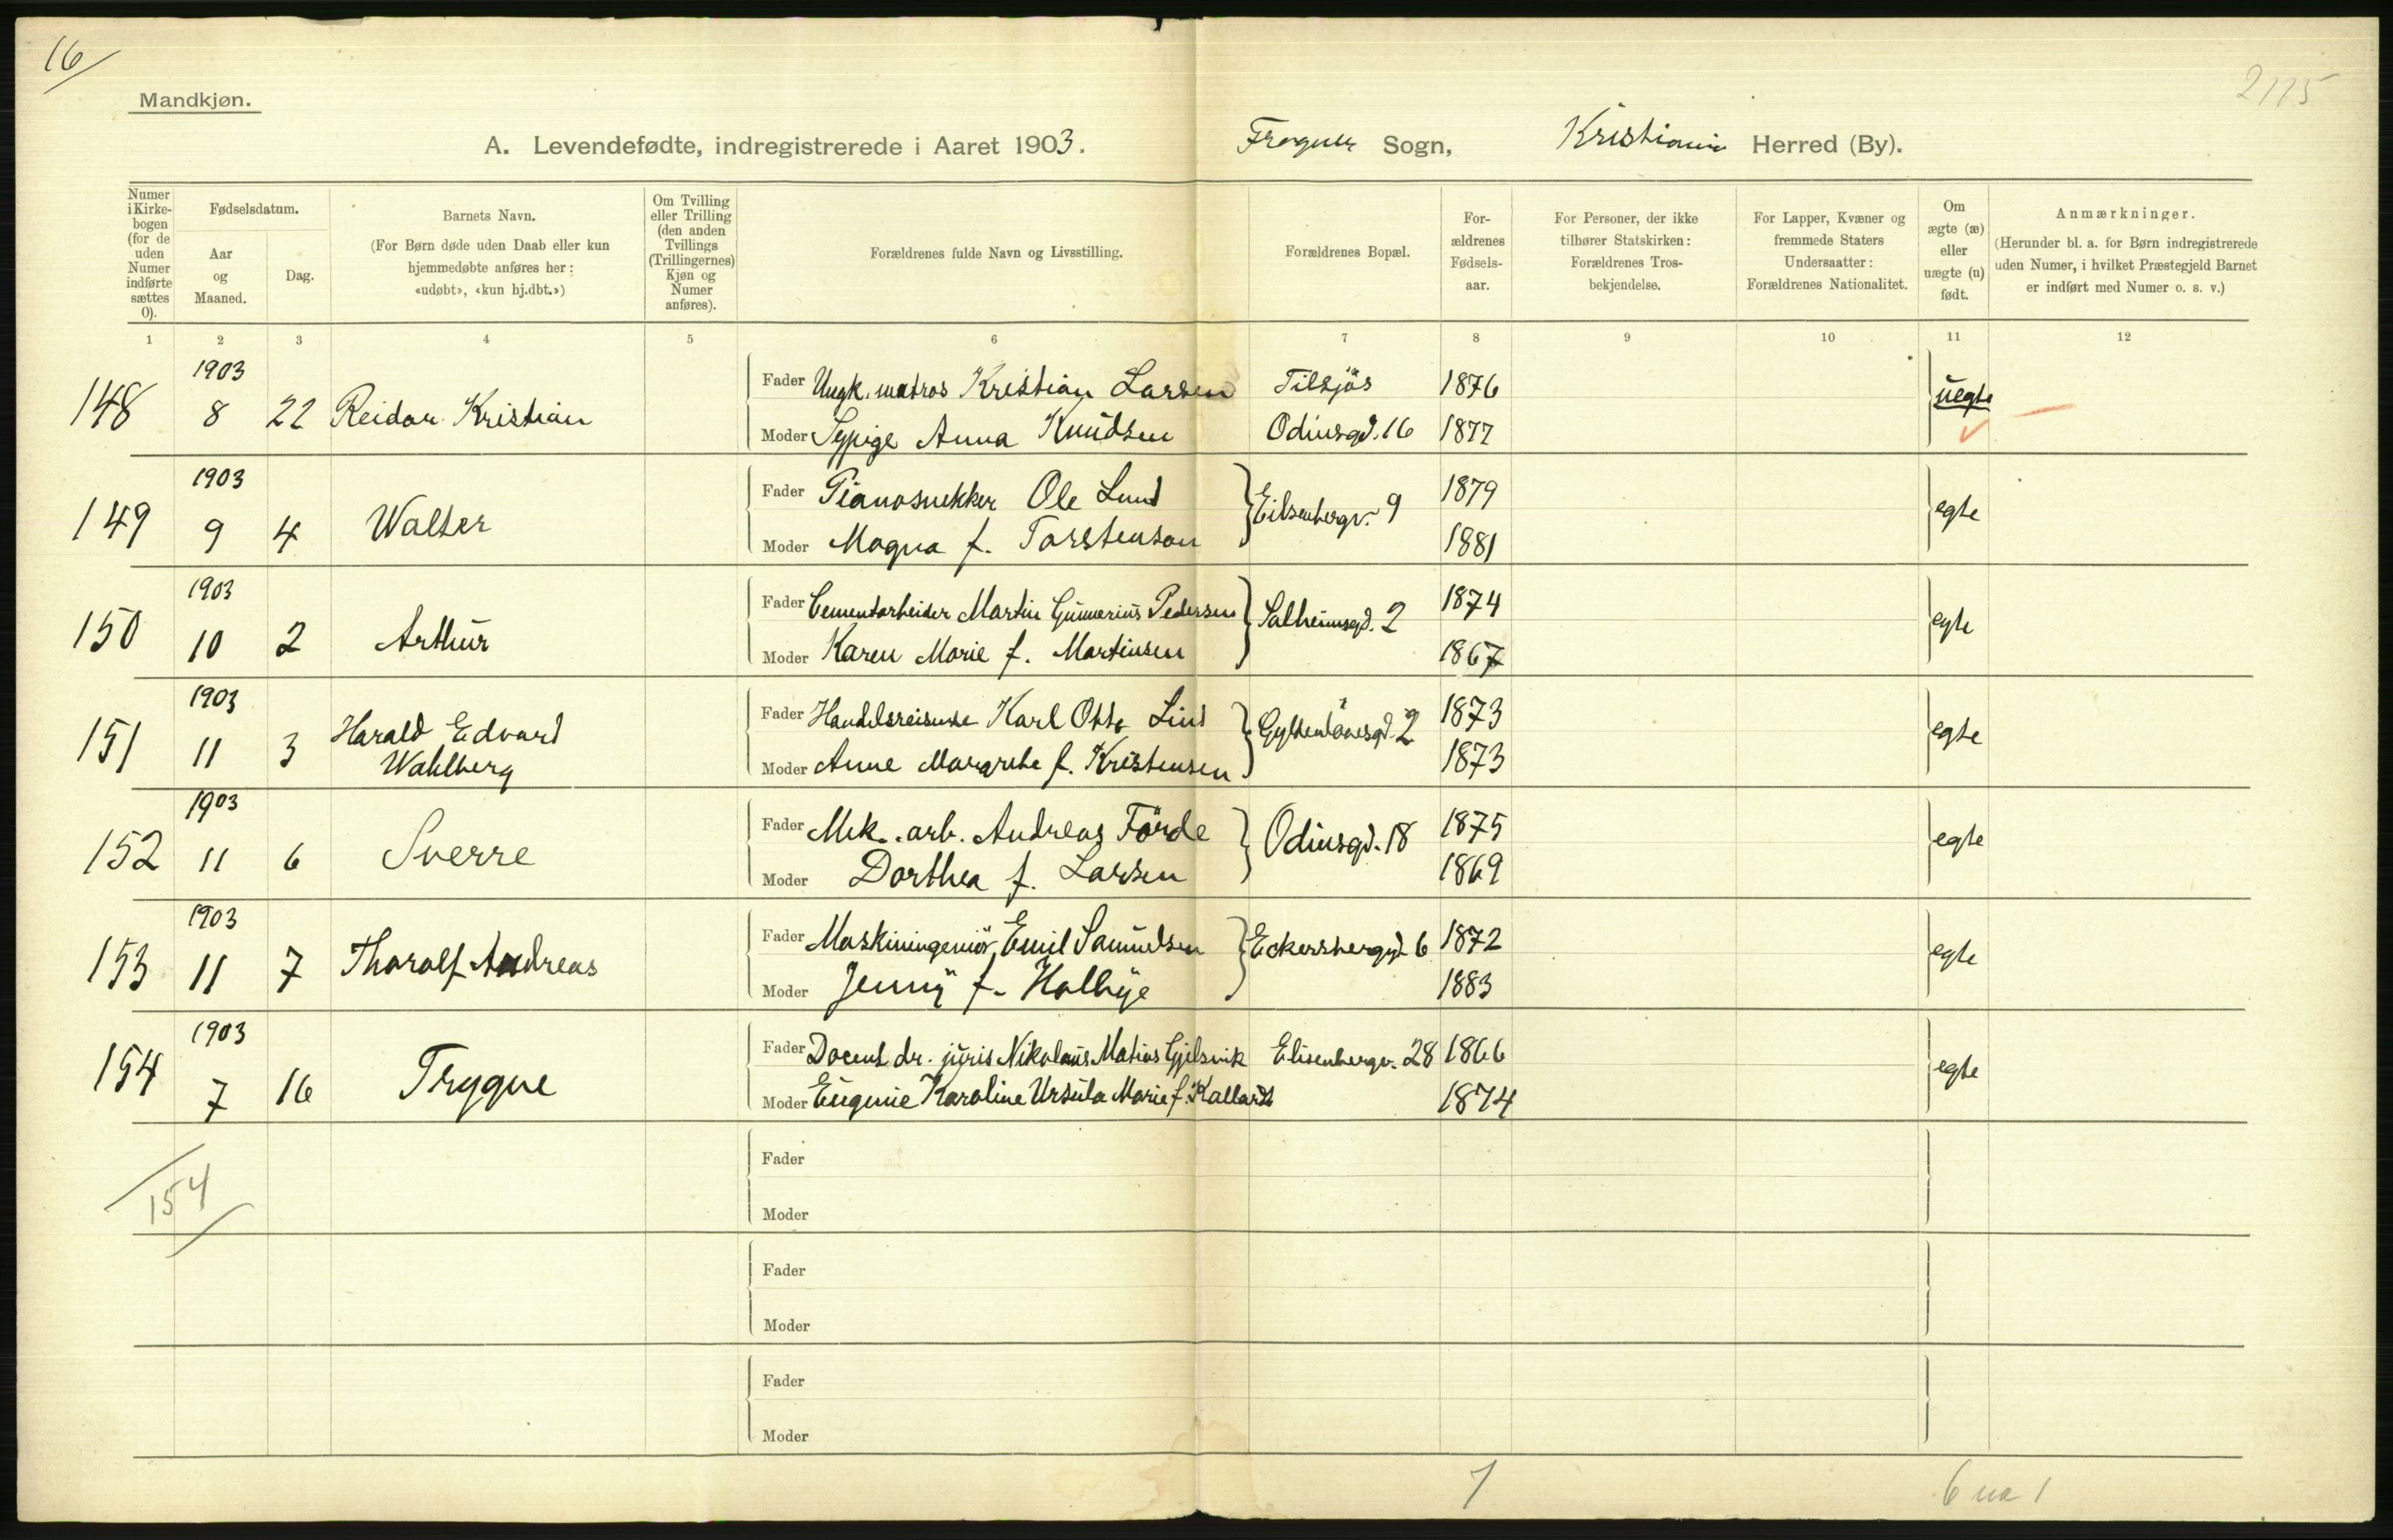 16
2115
Mandkjøn.
A. Levendefødte, indregistrerede i Aaret 1903. Frogner Sogn, Kristiania Herred (By).
Numer i Kirkebogen (for de uden Numer indførte sættes 0).
Fødselsdatum.
Aar og Maaned.
Dag.
Barnets Navn.
(For Børn døde uden Daab eller kun hjemmedøbte anføres her: «udøbt», «kun hj.dbt.»)
Om Tvilling eller Trilling (den anden Tvillings (Trillingernes) Kjøn og Numer anføres).
Forældrenes fulde Navn og Livsstilling.
Forældrenes Bopæl.
Forældrenes Fødselsaar.
For Personer, der ikke tilhører Statskirken: Forældrenes Trosbekjendelse.
For Lapper, Kvæner og fremmede Staters Undersaatter: Forældrenes Nationalitet.
Om ægte (æ) eller uægte (u) født.
Anmærkninger.
(Herunder bl. a. for Børn indregistrerede uden Numer, i hvilket Præstegjeld Barnet er indført med Numer o. s. v.)
1 2 3 4 5 6 7 8 9 10 11 12
148 1903 8 22 Reidar Kristian
Fader Ungk. matros Kristian Larsen Tilsjös 1876 uegte
Moder Sypige Anna Knudsen Odinsgd. 16 1877
149 1903 9 4 Walter
Fader Pianosnekker Ole Lund Eilsenbergv. 9 1879 egte
Moder Magna f. Torstenson 1881
150 1903 10 2 Arthur
Fader Cementarbeider Martin Gunnerius Pedersen Solheimsgd. 2 1874 egte
Moder Karen Marie f. Martinsen 1867
151 1903 11 3 Harald Edvard Wahlberg
Fader Handelsreisende Karl Otto Lind Gyldenlövesgd. 2 1873 egte
Moder Anne Margrethe f. Kristensen 1873
152 1903 11 6 Sverre
Fader Mek. arb. Andreas Förde Odinsgd. 18 1875 egte
Moder Dorthea f. Larsen 1869
153 1903 11 7 Thoralf Andreas
Fader Maskiningeniör Emil Samuelsen Eckersbergsgd. 6 1872 egte
Moder Jenny f. Holbye 1883
154 1903 7 16 Trygve
Fader Docent dr. juris Nikolaus Matias Gjelsvik Elisenbergv. 28 1866 egte
Moder Eugenie Karoline Ursula Marie f. 1874
154
Fader
Moder
Fader
Moder
Fader
Moder
7
6 ua 1